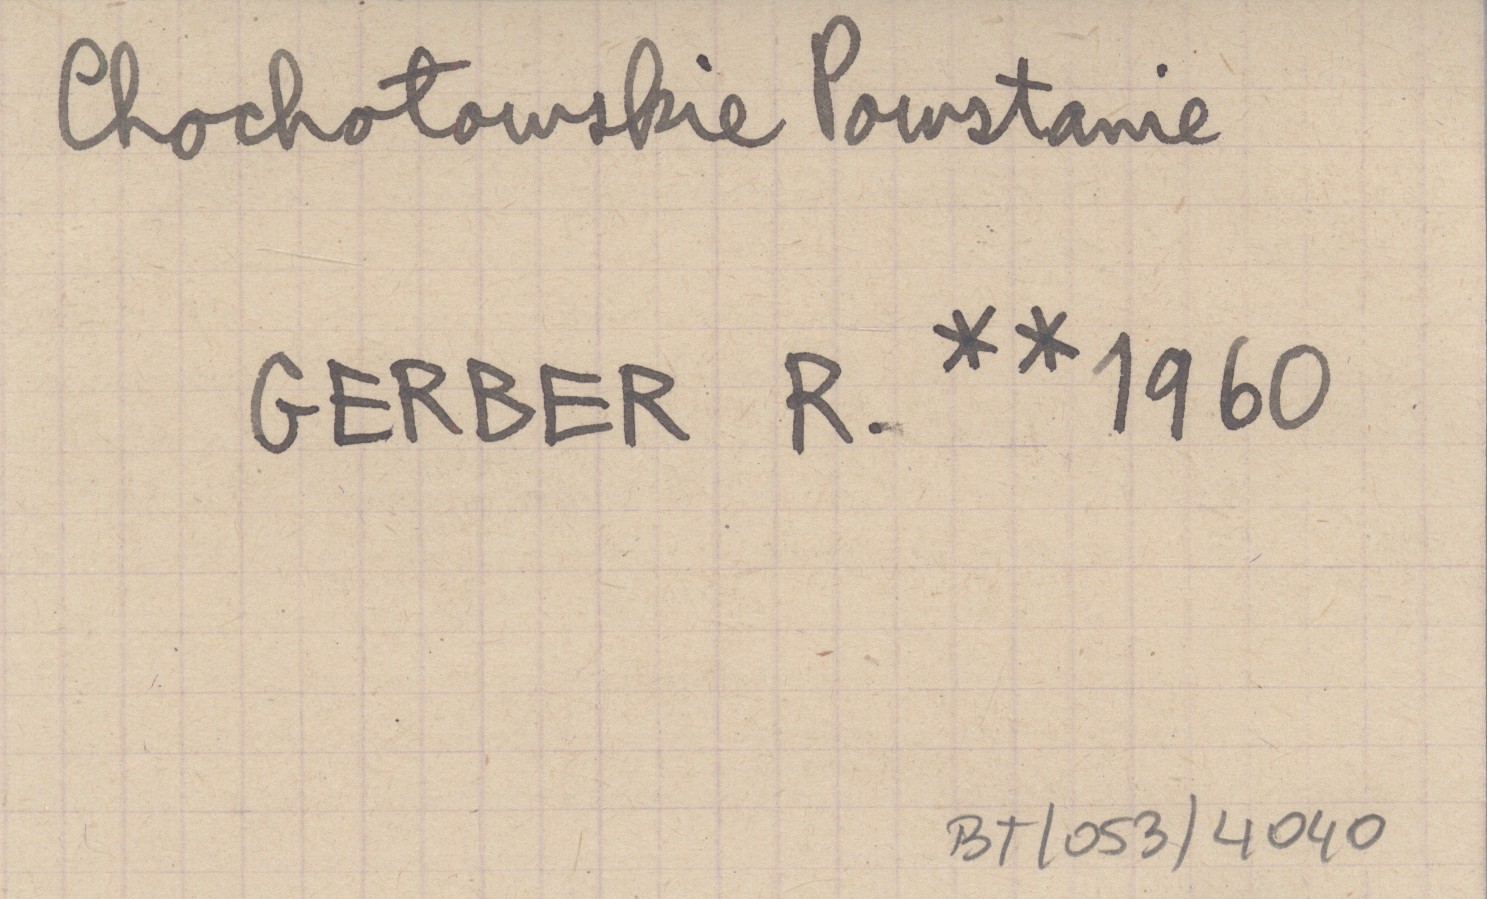 Chochołowskie Powstanie
GERBER R. **1960
BT/053/4040